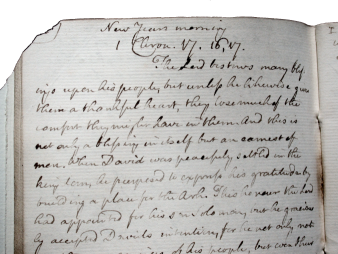 New Years morning
1 Chron. 17. 16, 17.
The Lord bestows many bles
ings upon his people, but unless he likewise gives
them a thankful heart, they lose much of the
comfort they might have in them. And this is
not only a blessing in itself but an earnest of
more. When David was peacefully settled in the
kingdom, he purposed to express his gratitude by
building a place for the Ark. This honour the Lord
had appointed for his son Solomon, but he gracious
ly accepted Davids intention, for he not only not
of his people, but even their